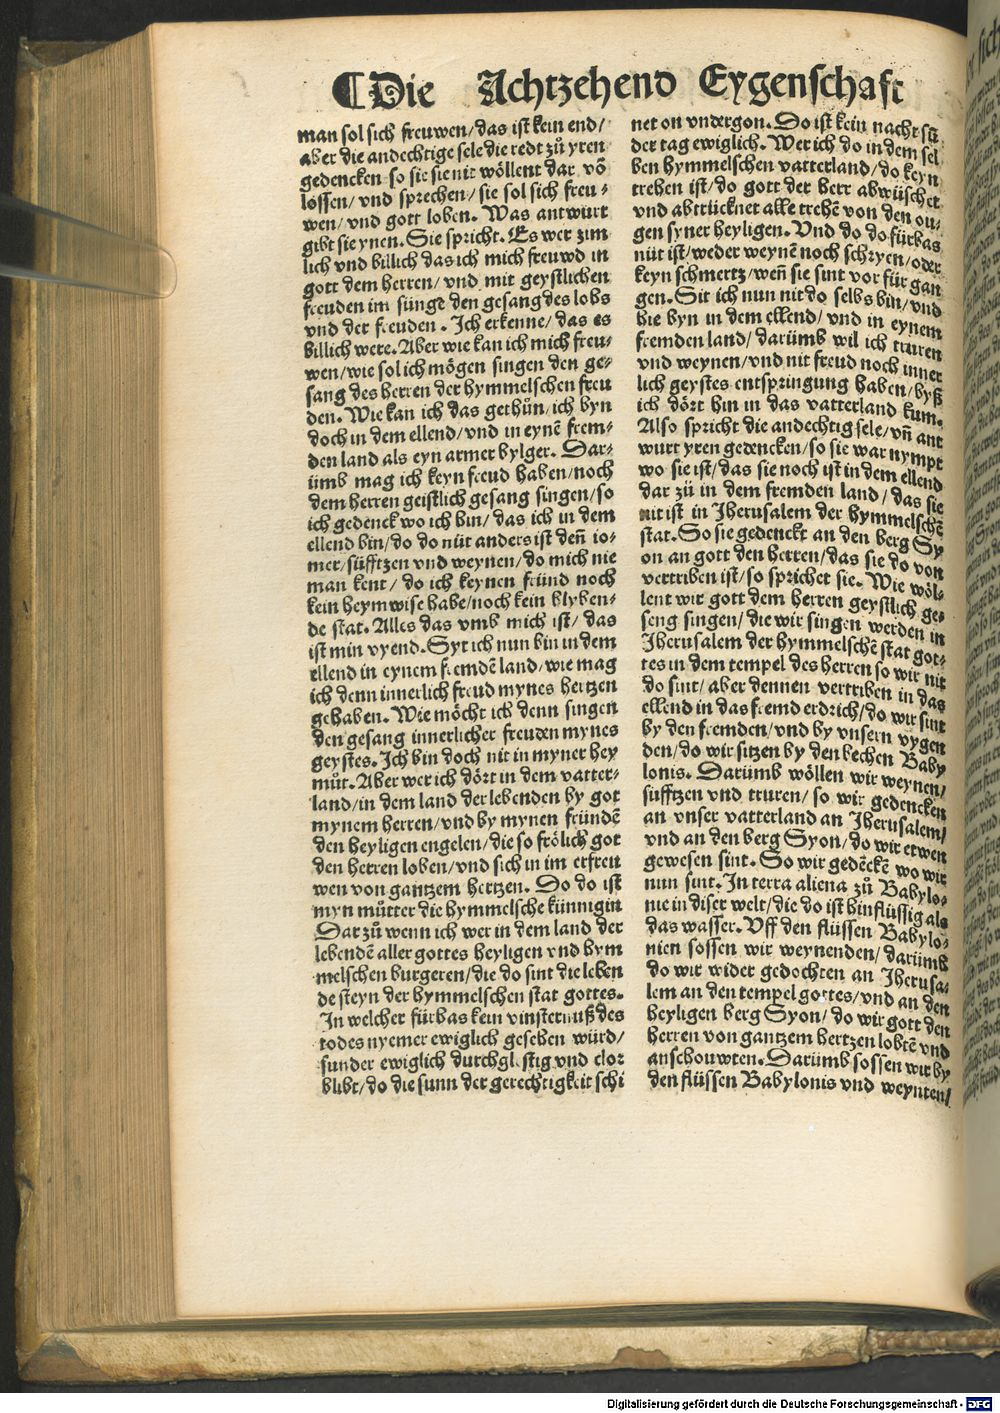 ¶Die Achtzehend Eygenschaft
man sol sich freuwen/das ist kein end/
aber die andechtige sele die redt zů yren
gedencken so sie sie nit wöllent dar võ
lossen/vnd sprechen/sie sol sich freu⸗
wen/vnd gott loben. Was antwurt
gibt sie ynen. Sie spricht. Es wer zim
lich vnd billich das ich mich freuwd in
gott dem herren/vnd mit geystlichen
freuden im sünge den gesang des lobs
vnd der freuden. Ich erkenne/das es
billich were. Aber wie kan ich mich freu⸗
wen/wie sol ich mögen singen den ge⸗
sang des herren der hymmelschen freu
den. Wie kan ich das gethůn/ich byn
doch in dem ellend/vnd in eynẽ frem⸗
den land als eyn armer bylger. Dar⸗
umb mag ich keyn freud haben/noch
dem herren geistlich gesang singen/so
ich gedenck wo ich bin/das ich in dem
ellend bin/do do nüt anders ist deñ io⸗
mer/süfftzen vnd weynen/do mich nie
man kent/do ich keynen fründ noch
kein heymwise habe/noch kein blyben⸗
de stat. Alles das vmb mich ist/das
ist min vyend. Syt ich nun bin in dem
ellend in eynem fremdẽ land/wie mag
ich denn innerlich freud mynes hertzen
gehaben. Wie möcht ich denn singen
den gesang innerlicher freuden mynes
geystes. Ich bin doch nit in myner hey
můt. Aber wer ich dört in dem vatter⸗
land/in dem land der lebenden by got
mynem herren/vnd by mynen fründẽ
den heyligen engelen/die so frölich got
den herren loben/vnd sich in im erfreu
wen von gantzem hertzen. Do do ist
myn můtter die hymmelsche künnigin
Dar zů wenn ich wer in dem land der
lebendẽ aller gottes heyligen vnd hym
melschen burgeren/die do sint die leben
de steyn der hymmelschen stat gottes.
In welcher fürbas kein vinsternuß des
todes nyemer ewiglich gesehen würd/
sunder ewiglich durchglestig vnd clor
blibt/do die sunn der gerechtigkeit schi
net on vndergon. Do ist kein nacht sũ
der tag ewiglich. Wer ich do in dem sel
ben hymmelschen vatterland/do keyn
trehen ist/do gott der herr abwüschet
vnd abtrücknet alle trehẽ von den ou⸗
gen syner heyligen. Vnd do do fürbas
nüt ist/weder weynẽ noch schryen/oder
keyn schmertz/weñ sie sint vor für gan
gen. Sit ich nun nit do selbs bin/vnd
hie byn in dem ellend/vnd in eynem
fremden land/darümb wil ich truren
vnd weynen/vnd nit freud noch inner
lich geystes entspringung haben/byß
ich dört hin in das vatterland kum.
Also spricht die andechtig sele/vñ ant
wurt yren gedencken/so sie war nympt
wo sie ist/das sie noch ist in dem ellend
dar zü in dem fremden land/das sie
nit ist in Jherusalem der hymmelschẽ
stat. So sie gedenckt an den berg Sy
on an gott den herren/das sie do von
vertriben ist/so sprichet sie. Wie wöl⸗
lent wir gott dem herren geystlich ge⸗
seng singen/die wir singen werden in
Jherusalem der hymmelschẽ stat got⸗
tes in dem tempel des herren so wir nit
do sint/aber dennen vertriben in das
ellend in das fremd erdrich/do wir sint
by den fremden/vnd by vnsern vygen
den/do wir sitzen by den bechen Baby
lonis. Darümb wöllen wir weynen/
sufftzen vnd truren/so wir gedencken
an vnser vatterland an Jherusalem/
vnd an den berg Syon/do wir etwen
gewesen sint. So wir gedẽckẽ wo wir
nun sint. In terra aliena zů Babylo⸗
nie in diser welt/die do ist hinflüssig als
das wasser. Vff den flüssen Babylo⸗
nien sossen wir weynenden/darümb
do wir wider gedochten an Jherusa⸗
lem an den tempel gottes/vnd an den
heyligen berg Syon/do wir gott den
herren von gantzem hertzen lobtẽ vnd
anschouwten. Darümb sossen wir by
den flüssen Babylonis vnd weynten/
Digitalisierung gefördert durch die Deutsche Forschungsgemeinschaft - DFG